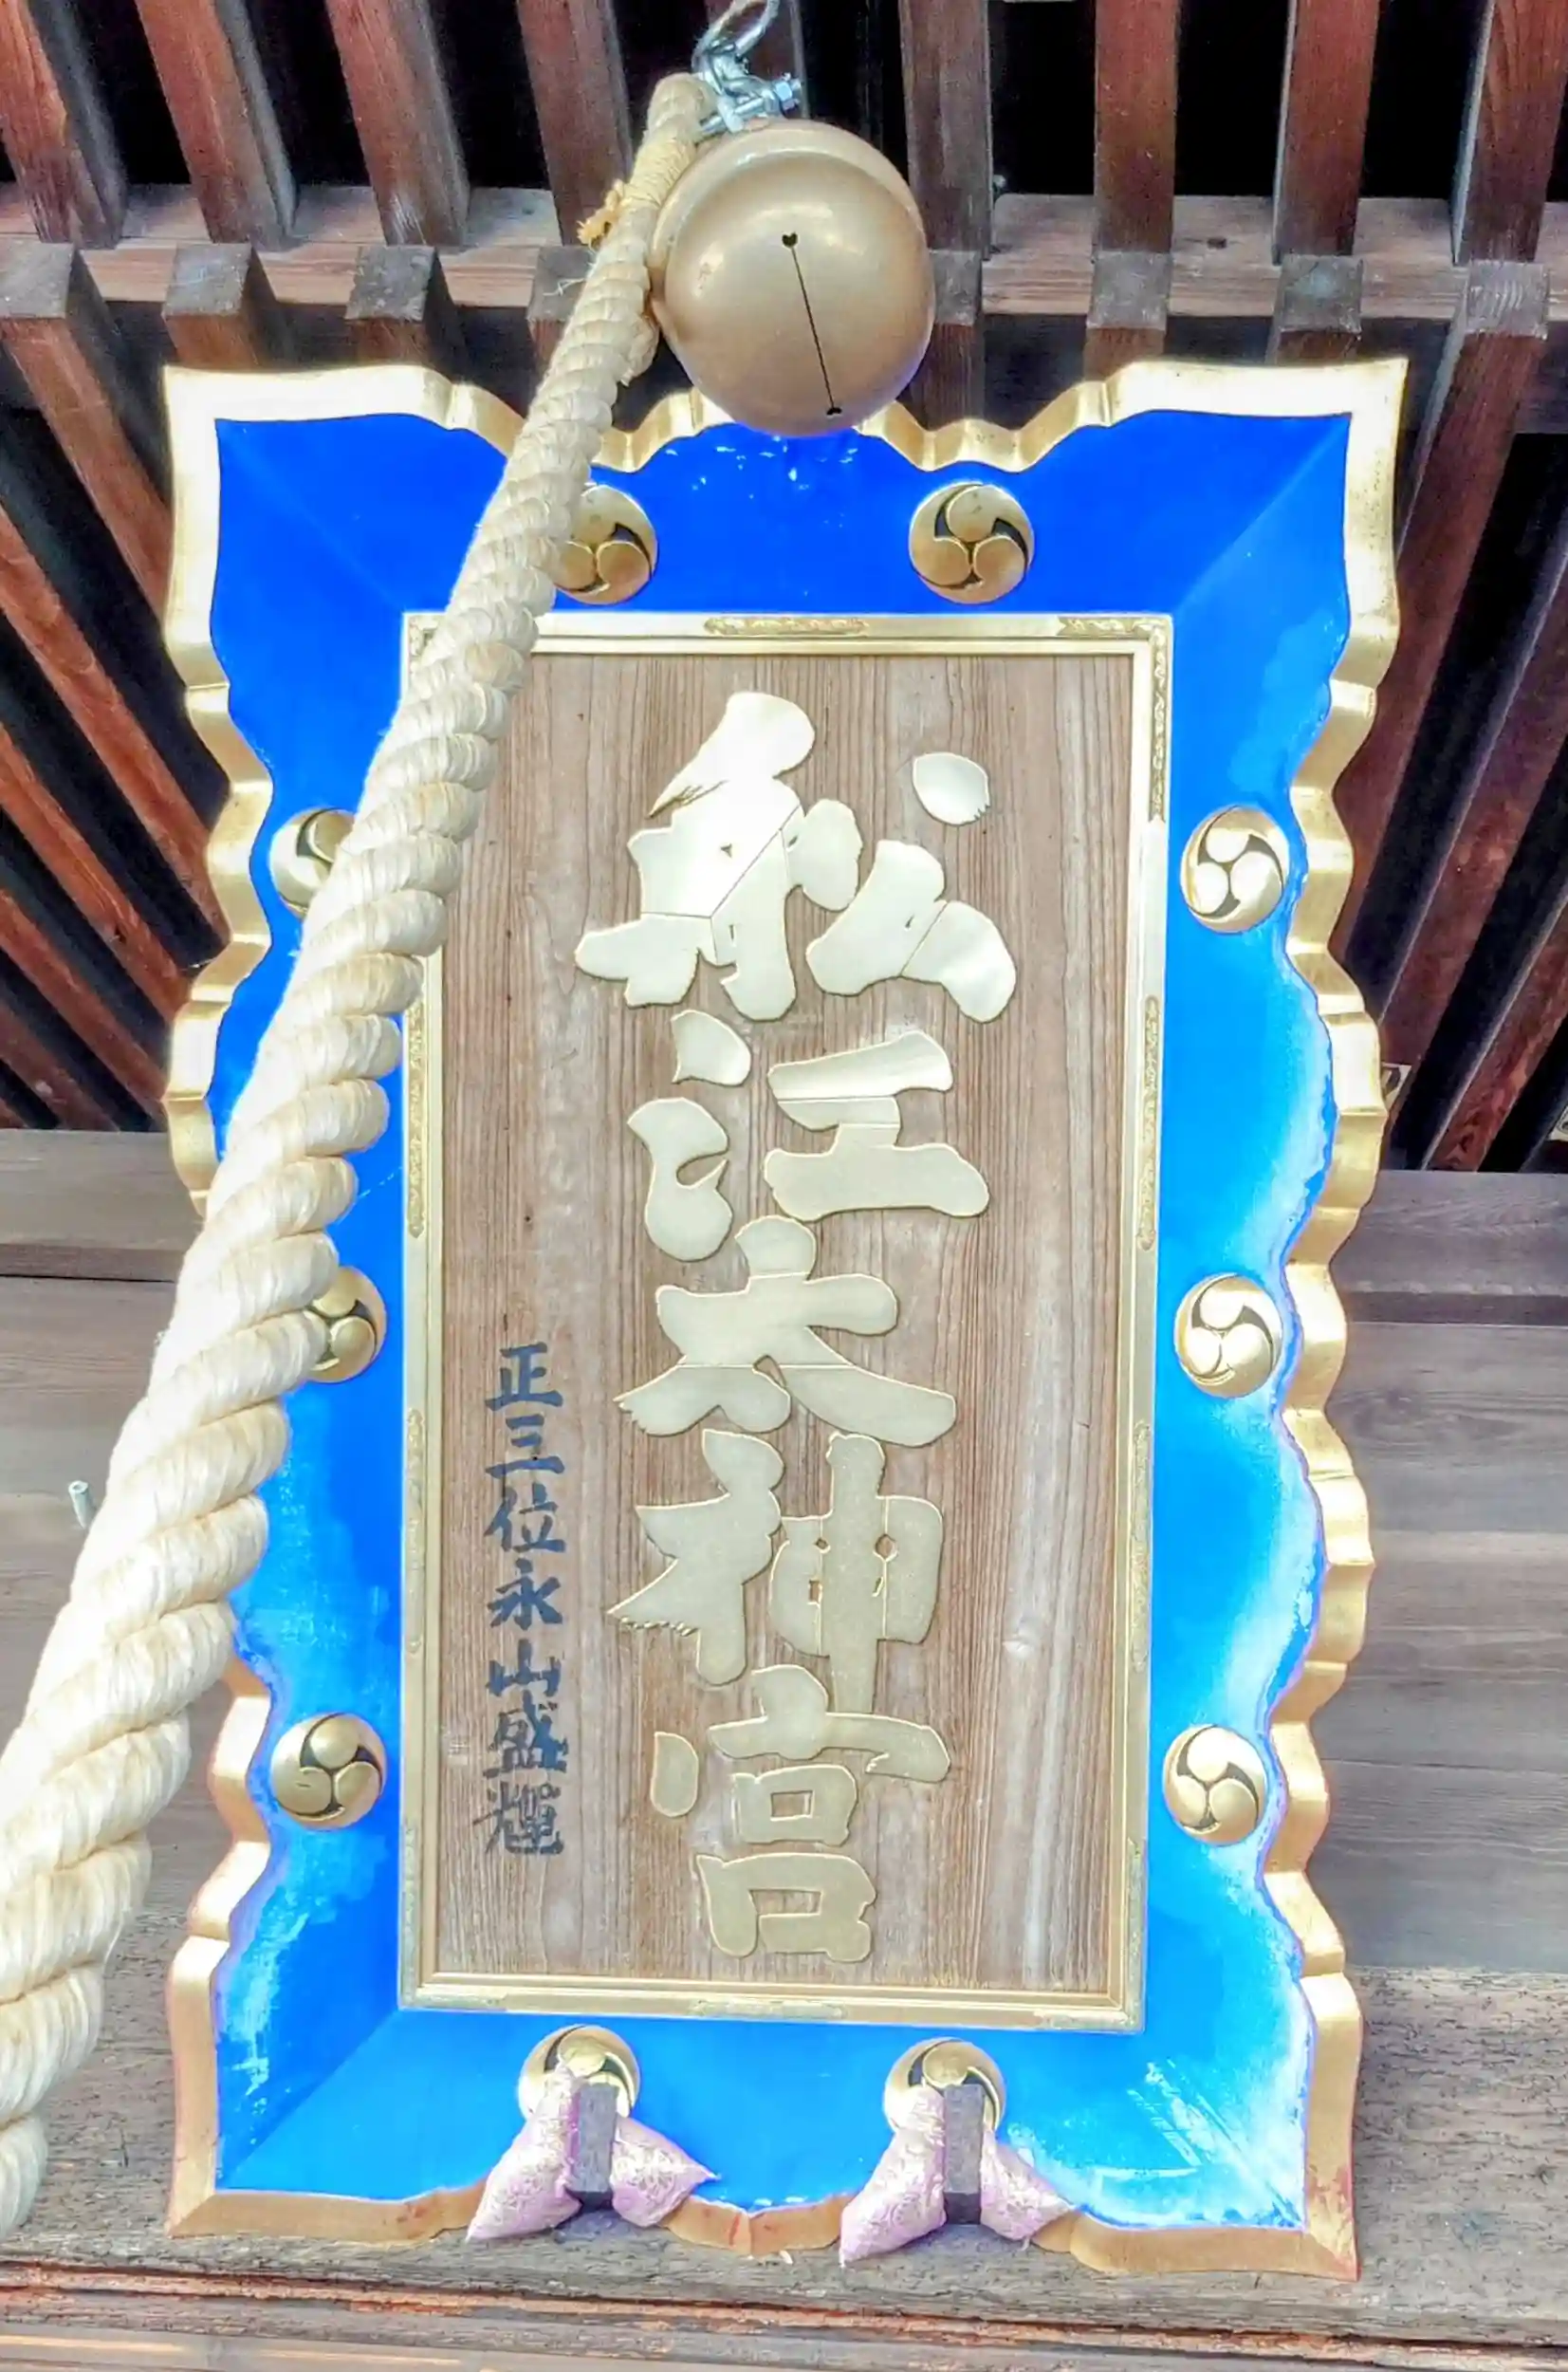 舩江大神宮
正三位永山盛輝